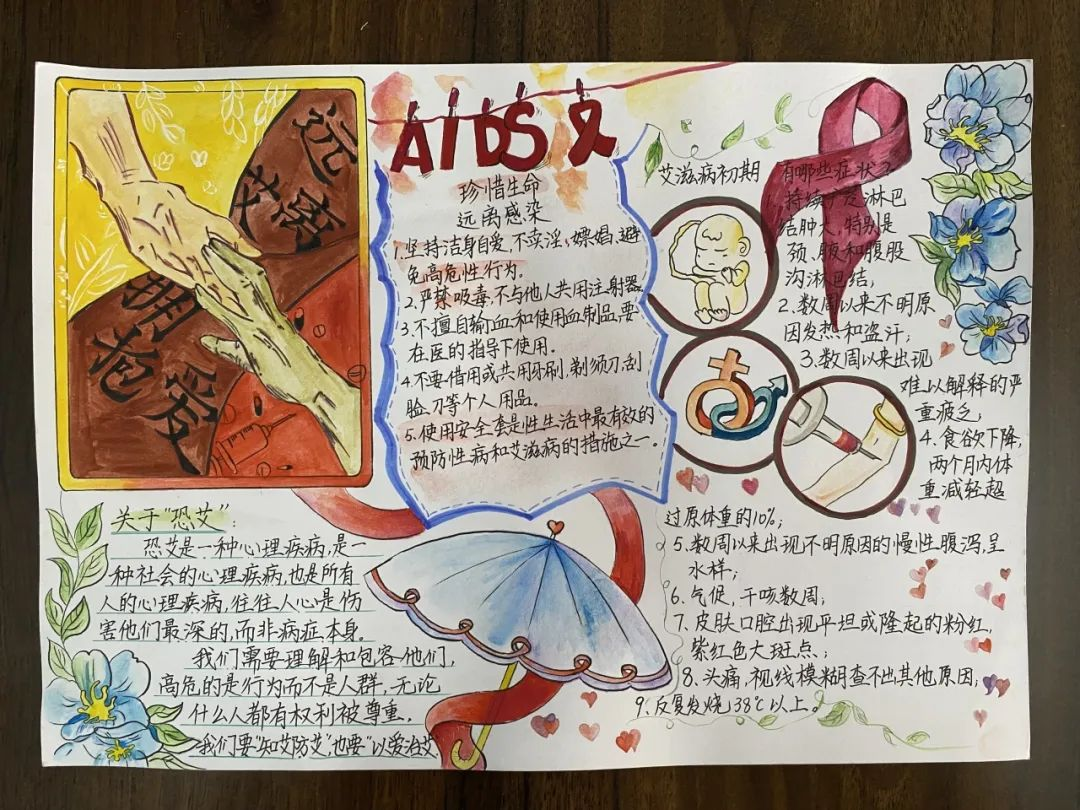 远离
艾
拥抱
爱
AIDS
珍惜生命
远离感染
1.坚持洁身自爱.不卖淫、嫖娼、避
免高危性行为。
2.严禁吸毒,不与他人共用注射器
3.不擅自输血和使用血制品,要
在医的指导下使用。
4.不要借用或共用牙刷,剃须刀,刮
脸刀等个人用品。
5.使用安全套是性生活中最有效的
预防性病和艾滋病的措施之一。
艾滋病初期 有哪些症状?
1.持续广泛淋巴
结肿大,特别是
颈、腋和腹股
沟淋巴结;
2.数周以来不明原
因发热和盗汗;
3.数周以来出现
难以解释的严
重疲乏;
4.食欲下降,
两个月内体
重减轻超
过原体重的10%;
5.数周以来出现不明原因的慢性腹泻,呈
水样;
6.气促,干咳数周;
7.皮肤口腔出现平坦或隆起的粉红,
紫红色大斑点;
8.头痛,视线模糊查不出其他原因;
9.反复发烧38℃以上。
关于“恐艾”:
恐艾是一种心理疾病,是一
种社会的心理疾病,也是所有
人的心理疾病,往往人心是伤
害他们最深的,而非病症本身.
我们需要理解和包容他们,
高危的是行为而不是人群,无论
什么人都有权利被尊重.
我们要“知艾防艾”也要“以爱治艾